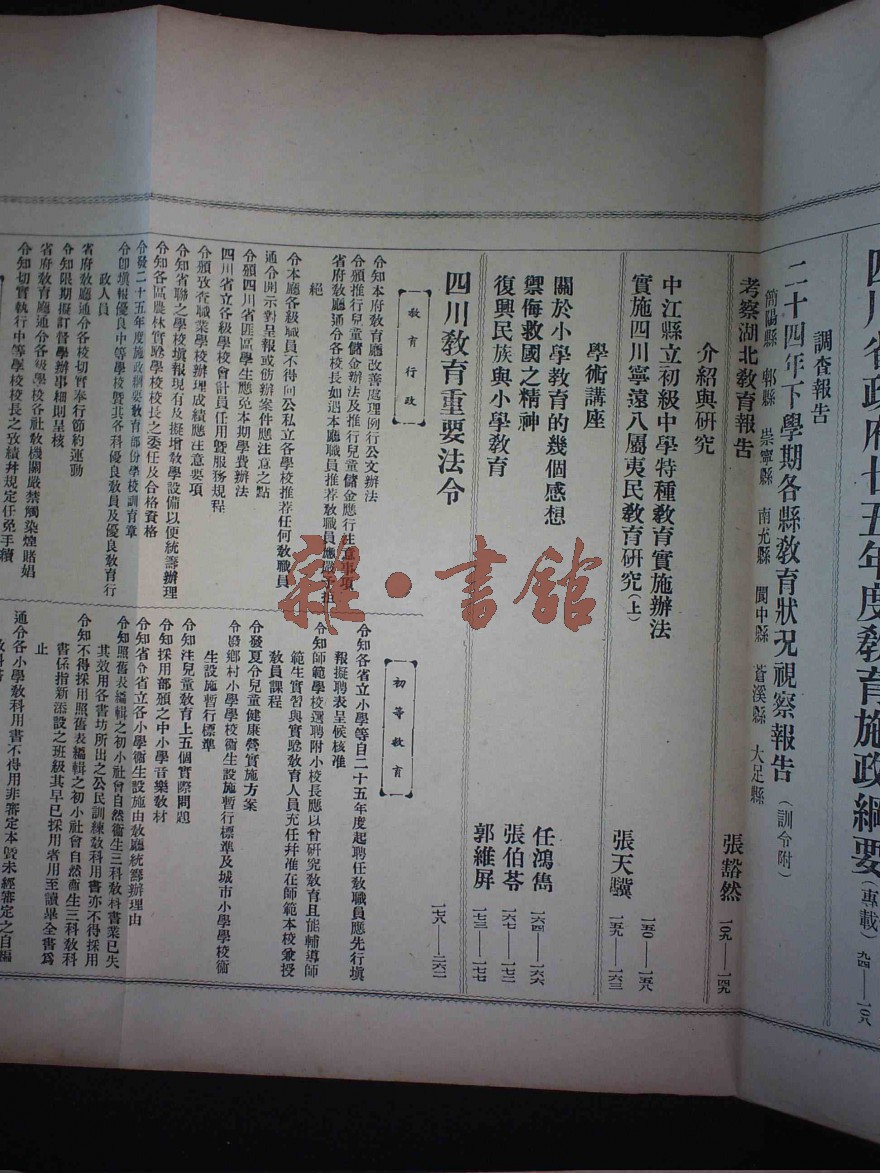 四川省政府廿五年度敎育施政綱要(專載) 九四——一〇八
調査報吿
二十四年下學期各縣敎育狀况視察報吿(訓令附)
簡陽縣 郫縣 崇寧縣 南充縣 閬中縣 蒼溪縣 大足縣
考察湖北敎育報吿 張豁然 一〇九——一四九
介紹與硏究
中江縣立初級中學特種敎育實施辦法 一五〇——一五八
實施四川寧遠八屬夷民敎育硏究(上) 張天驥 一五九——一六三
學術講座
關於小學敎育的幾個感想 任鴻雋 一六四——一六六
禦侮救國之精神 張伯苓 一六七——一七二
復興民族與小學敎育 郭維屏 一七三——一七七
四川敎育重要法令 一七八——二六二
敎育行政
令知本府敎育廳改善處理例行公文辦法
令頒推行兒童儲金辦法及推行兒童儲金應行注意事項
省府敎廳通令各校長如遇本廳職員推荐敎職員應嚴予拒
絕
令本廳各級職員不得向公私立各學校推荐任何敎職員
通令開示對呈報或防辦案件應注意之點
令頒四川省匪區學生應免本期學費辦法
四川省立各級學校會計員任用暨服務規程
令頒攷查職業學校辦理成績應注意要項
令知省聯之學校塡報現有及擬增敎學設備以便統籌辦理
令知各區農林實驗學校校長之委任及合格資格
令發二十五年度施政綱要敎育部份學校訓育章
令卽塡報優良中等學校暨其各科優良敎員及優良敎育行
政人員
省府敎廳通令各校切實奉行節約運動
令知限期擬訂督學辦事細則呈核
省府敎育廳通令各級學校各社敎機關嚴禁觸染煙賭娼
令知切實執行中等學校校長之攷績幷規定任免手續
初等敎育
令知各省立小學等自二十五年度起聘任敎職員應先行塡
報擬聘表呈候核准
令知師範學校選聘附小校長應以曾硏究敎育且能輔導師
範生實習與實驗敎育人員充任幷准在師範本校兼授
敎員課程
令發夏令兒童健康營實施方案
令發鄉村小學學校衞生設施暫行標準及城市小學學校衞
生設施暫行標準
令知注兒童敎育上五個實際問題
令知採用部頒之中小學音樂敎材
令知省令省立各小學衞生設施由敎廳統籌辦理由
令知照舊表編輯之初小社會自然衞生三科敎科書業已失
其效用各書坊所出之公民訓練敎科用書亦不得採用
令知不得採用照舊表編輯之初小社會自然衞生三科敎科
書係指新添設之班級其早已採用省用至讀畢全書爲
止
通令各小學敎科用書不得用非審定本暨未經審定之自編
雜·書館